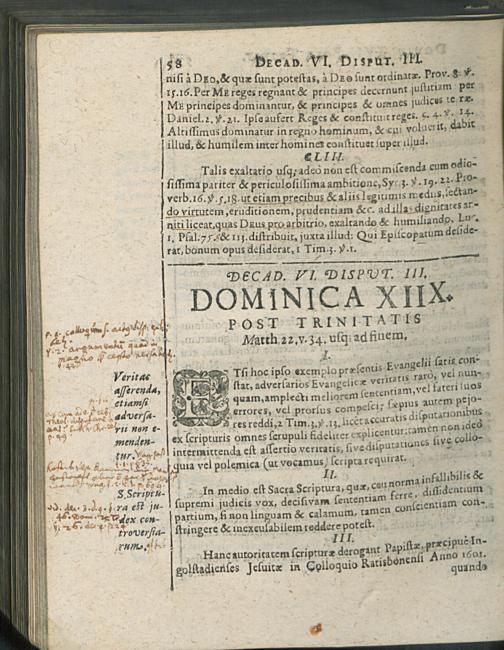 58 DECAD. VI. DISPUT. III.
nisi à DEO, & quæ sunt potestas, à DEO sunt ordinatæ. Prov. 8. ℣.
15.16. Per ME reges regnant & principes decernunt justitiam per
ME principes dominantur, & principes & omnes judices terræ.
Daniel. 2. ℣. 21. Ipse aufert Reges & constituit reges. c. 4. ℣. 14.
Altissimus dominatur in regno hominum, & cui voluerit, dabit
illud, & humilem inter homines constituet super illud.
CLIII.
Talis exaltatio usq; adeò non est commiscenda cum odio-
sissima pariter & periculosissima ambitione, Syr. 3. ℣. 19. 22. Pro-
verb. 16. ℣. 5. 18. ut etiam precibus & aliis legitimis mediis, sectan-
do virtutem, eruditionem, prudentiam &c. ad illa dignitates an-
niti liceat, quas Deus pro arbitrio, exaltando & humiliando, Luc.
1. Psal. 75. & 113. distribuit, juxta illud: Qui Episcopatum deside-
rat, bonum opus desiderat, 1 Tim. 3. ℣. 1.
DECAD. VI. DISPUT. III.
DOMINICA XIIX.
POST TRINITATIS
Matth 22. v. 34. usq; ad finem.
I.
ETsi hoc ipso exemplo præsentis Evangelii satis con-
stat, adversarios Evangelicæ veritatis rarò, vel nun-
quam, amplecti meliorem sententiam, vel fateri suos
errores, vel prorsus compesci; sæpius autem pejo-
res reddi, 2 Tim. 3. ℣. 13. licet accuratis disputationibus
ex scripturis omnes scrupuli fideliter explicentur: tamen non ideò
intermittenda est assertio veritatis, sive disputationes sive collo-
quia vel polemica (ut vocamus) scripta requirat.
Veritas
asserenda,
etiamsi
adversa-
rii non e-
menden-
tur.
II.
In medio est Sacra Scriptura, quæ, ceu norma infallibilis &
supremi judicis vox, decisivam sententiam ferre, dissidentium
partium, si non linguam & calamum, tamen conscientiam con-
stringere & inexcusabilem reddere potest.
S. Scriptu-
ra est ju-
dex con-
troversia-
rum.
III.
Hanc autoritatem scripturæ derogant Papistæ, præcipuè In-
golstadienses Jesuitæ in Colloquio Ratisbonensi Anno 1601.
quando